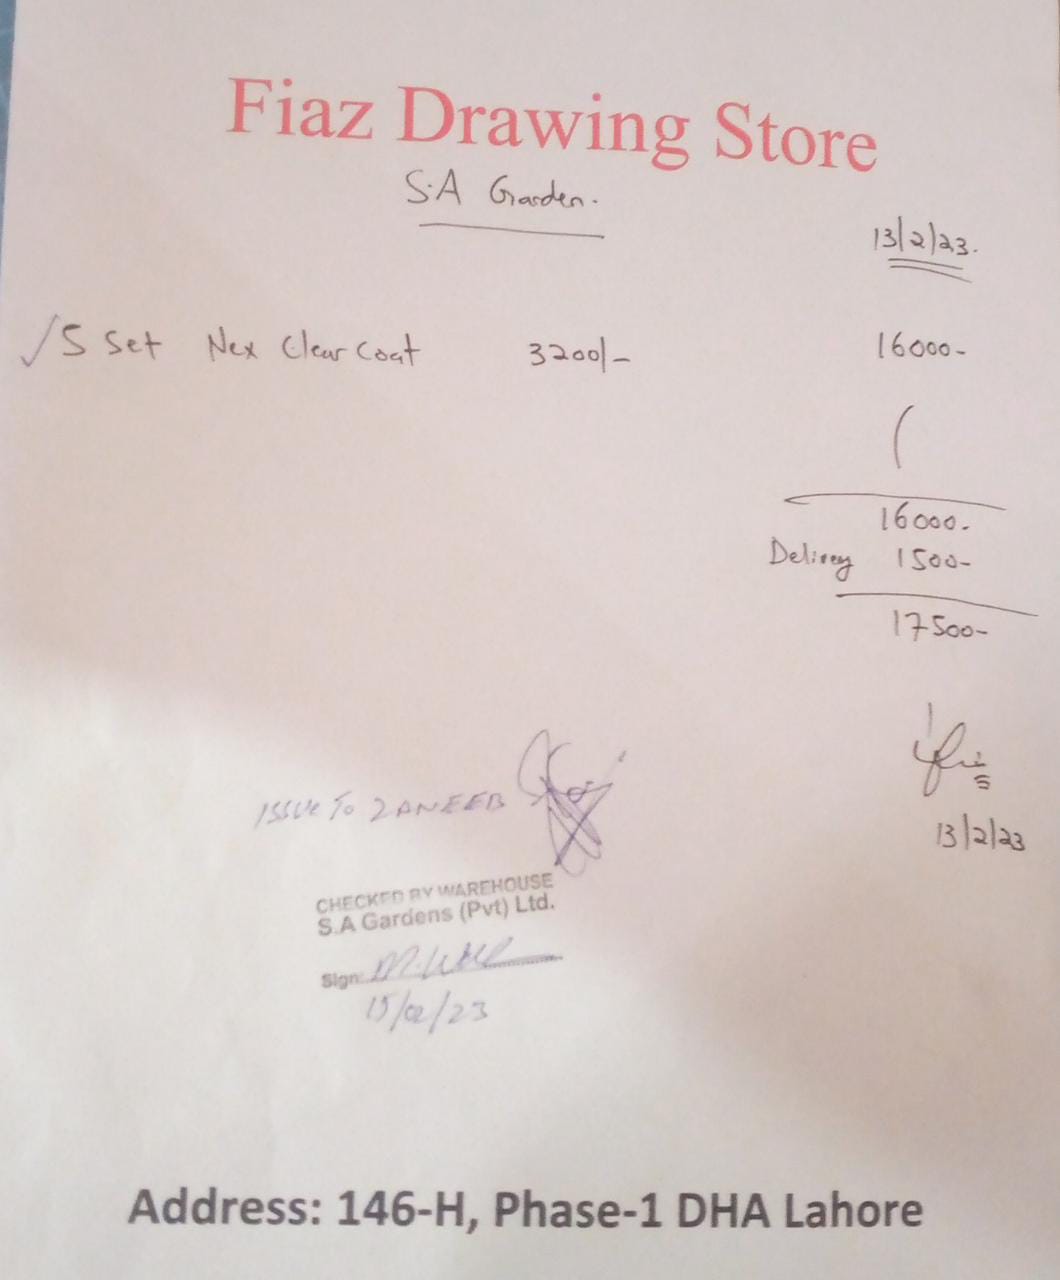 Fiaz Drawing Store
S.A Garden.
13/2/23.
5 Set Nex Clear Coat 3200/- 16000-
16000.
Delivey 1500-
17500-
13/2/23
ISSUE To ZANEEB
CHECKED BY WAREHOUSE
S.A Gardens (Pvt) Ltd.
Sign:
15/02/23
Address: 146-H, Phase-1 DHA Lahore